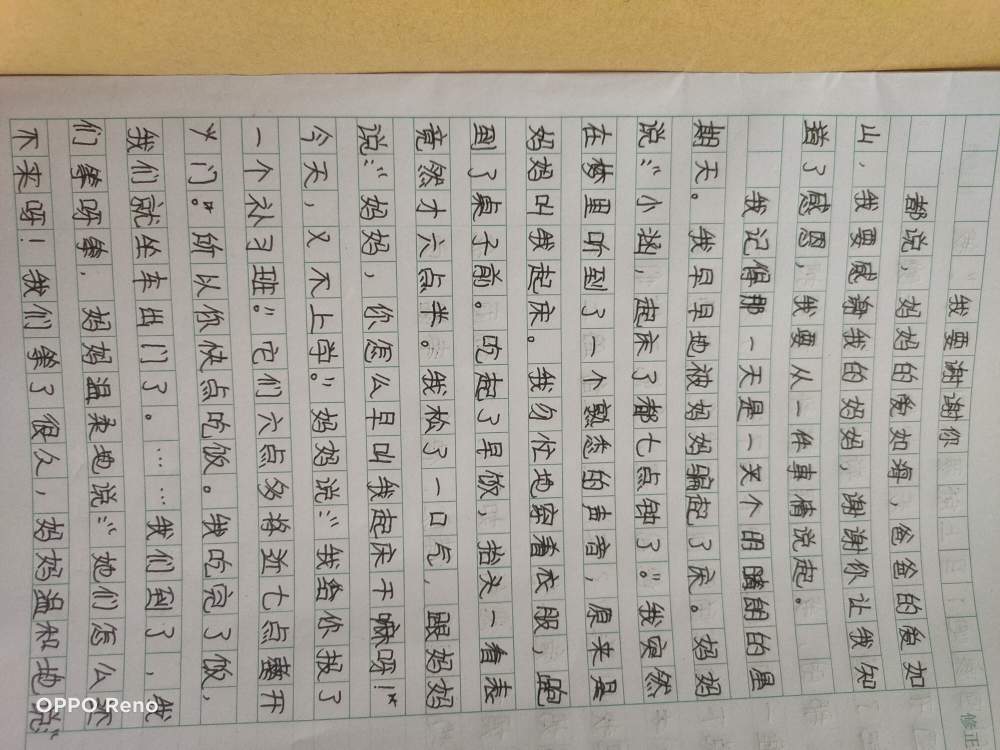 我要谢谢你
都说，妈妈的爱如海，爸爸的爱如
山，我要感谢我的妈妈，谢谢你让我知
道了感恩，我要从一件事情说起。
我记得那一天是一天个的晴朗的星
期天。我早早地被妈妈骗起了床。妈妈
说：“小涵，起床了都七点钟了。”我突然
在梦里听到了一个熟悉的声音，原来是
妈妈叫我起床。我匆忙地穿着衣服，跑
到了桌子前。吃起了早饭，抬头一看表
竟然才六点半。我松了一口气，跟妈妈
说：“妈妈，你怎么早叫我起床干嘛呀！”
今天，又不上学。”妈妈说：“我给你报了
一个补习班。”它们六点多将近七点开
门。”所以你快点吃饭。我吃完了饭，
我们就坐车出门了。……我们到了，我
们等呀等，妈妈温柔地说：“她们怎么还
不来呀！我们等了很久，妈妈温和地说：“
修正
OPPO Reno